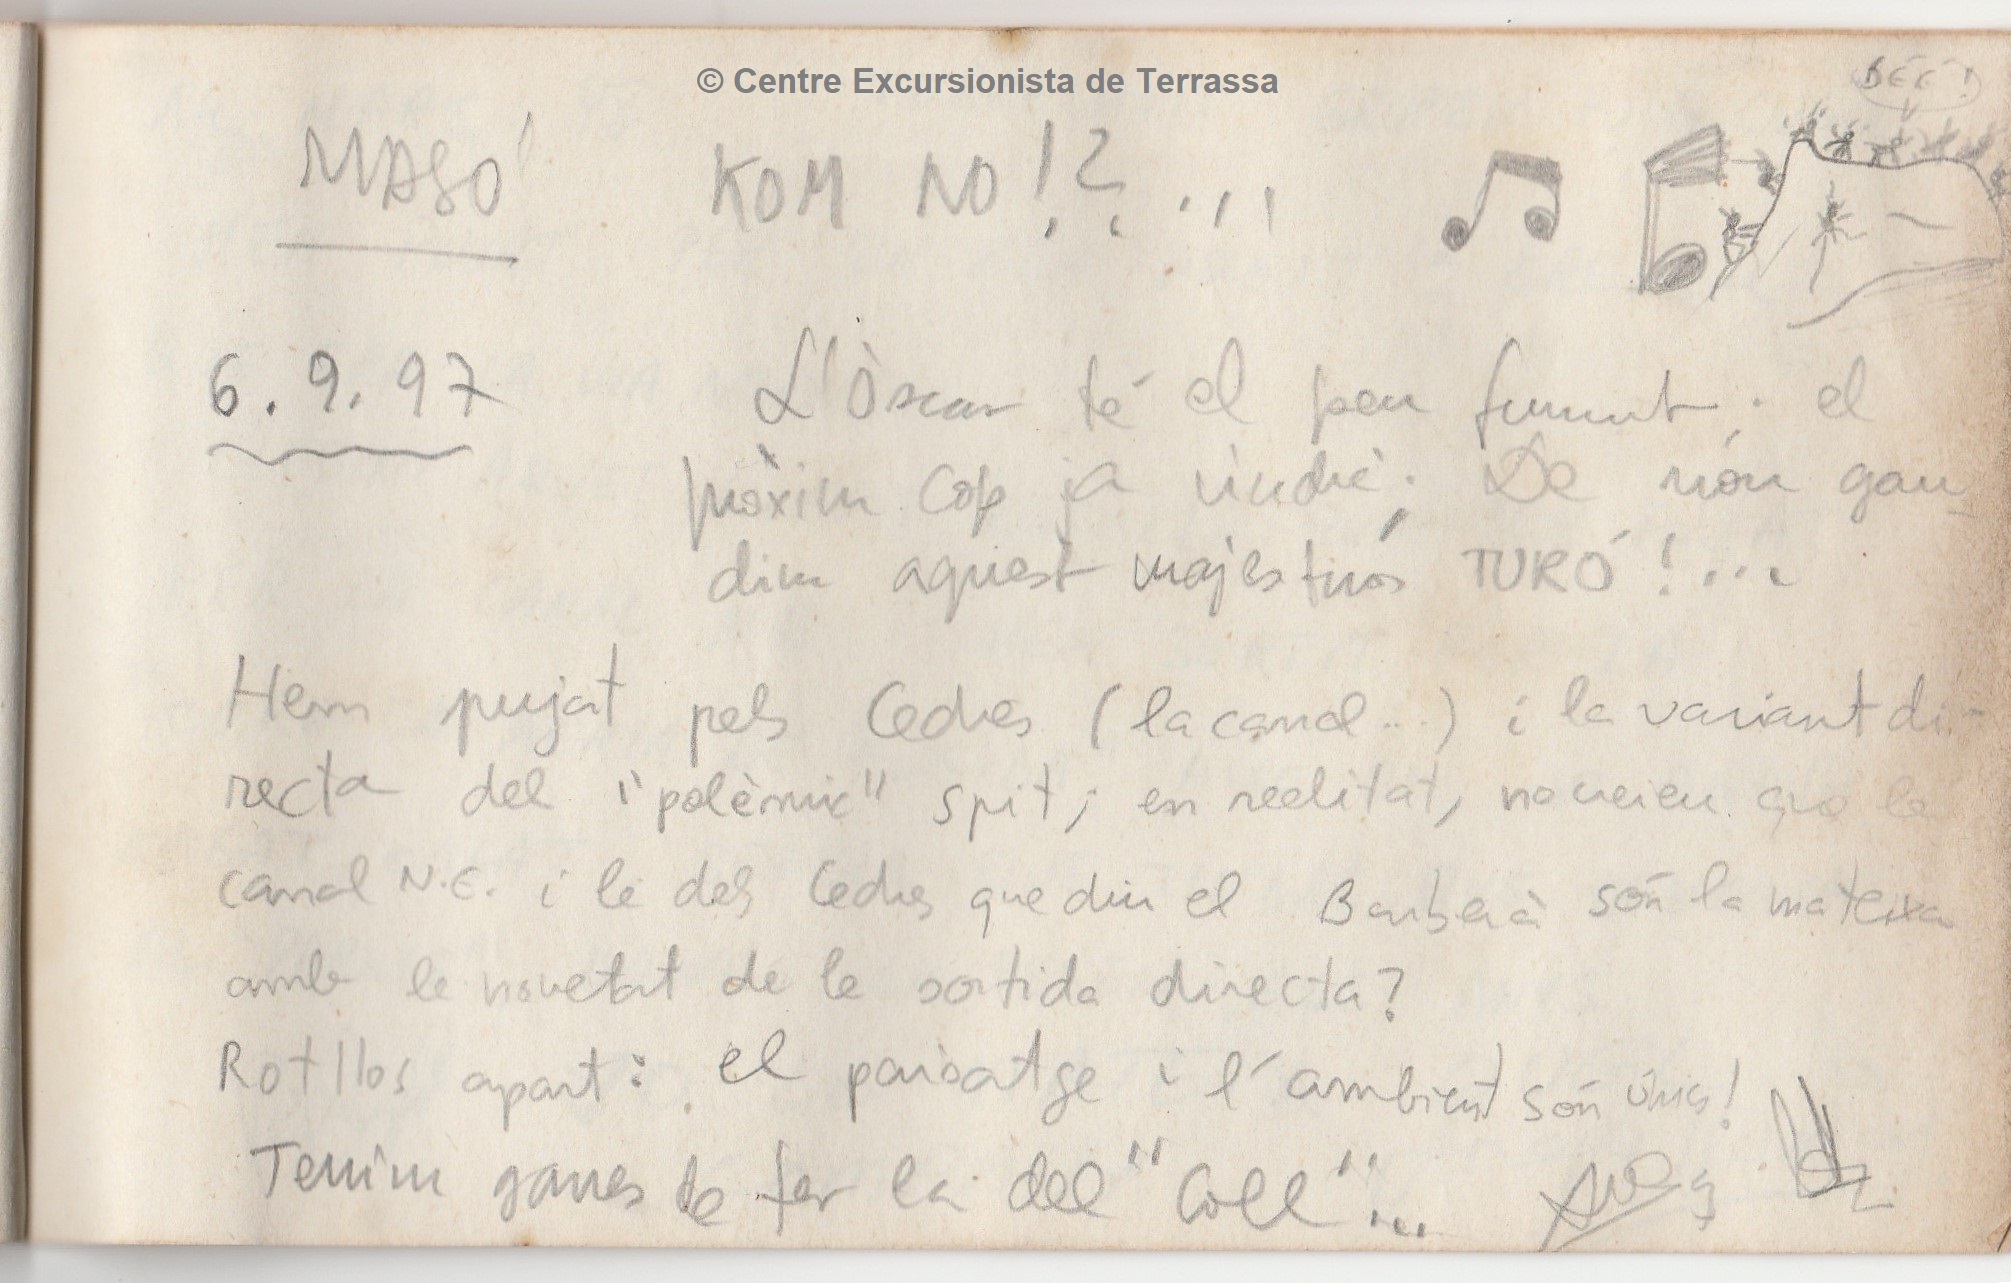 © Centre Excursionista de Terrassa
BÉÉ!
MASÓ KOM NO!?...
6.9.97 L'Òscar té el peu fumut; el
pròxim cop ja vindrè; De nou gau
dim aquest majestuós TURÓ!...
Hem pujat pels Cedres (la canal...) i la variant di-
recta del "polèmic" spit; en realitat, no creieu que la
canal N.E. i la dels Cedres que diu el Barberà són la mateixa
amb la novetat de la sortida directa?
Rotllos apart: el paisatge i l'ambient són únics!
Tenim ganes de fer la del "Coll"...